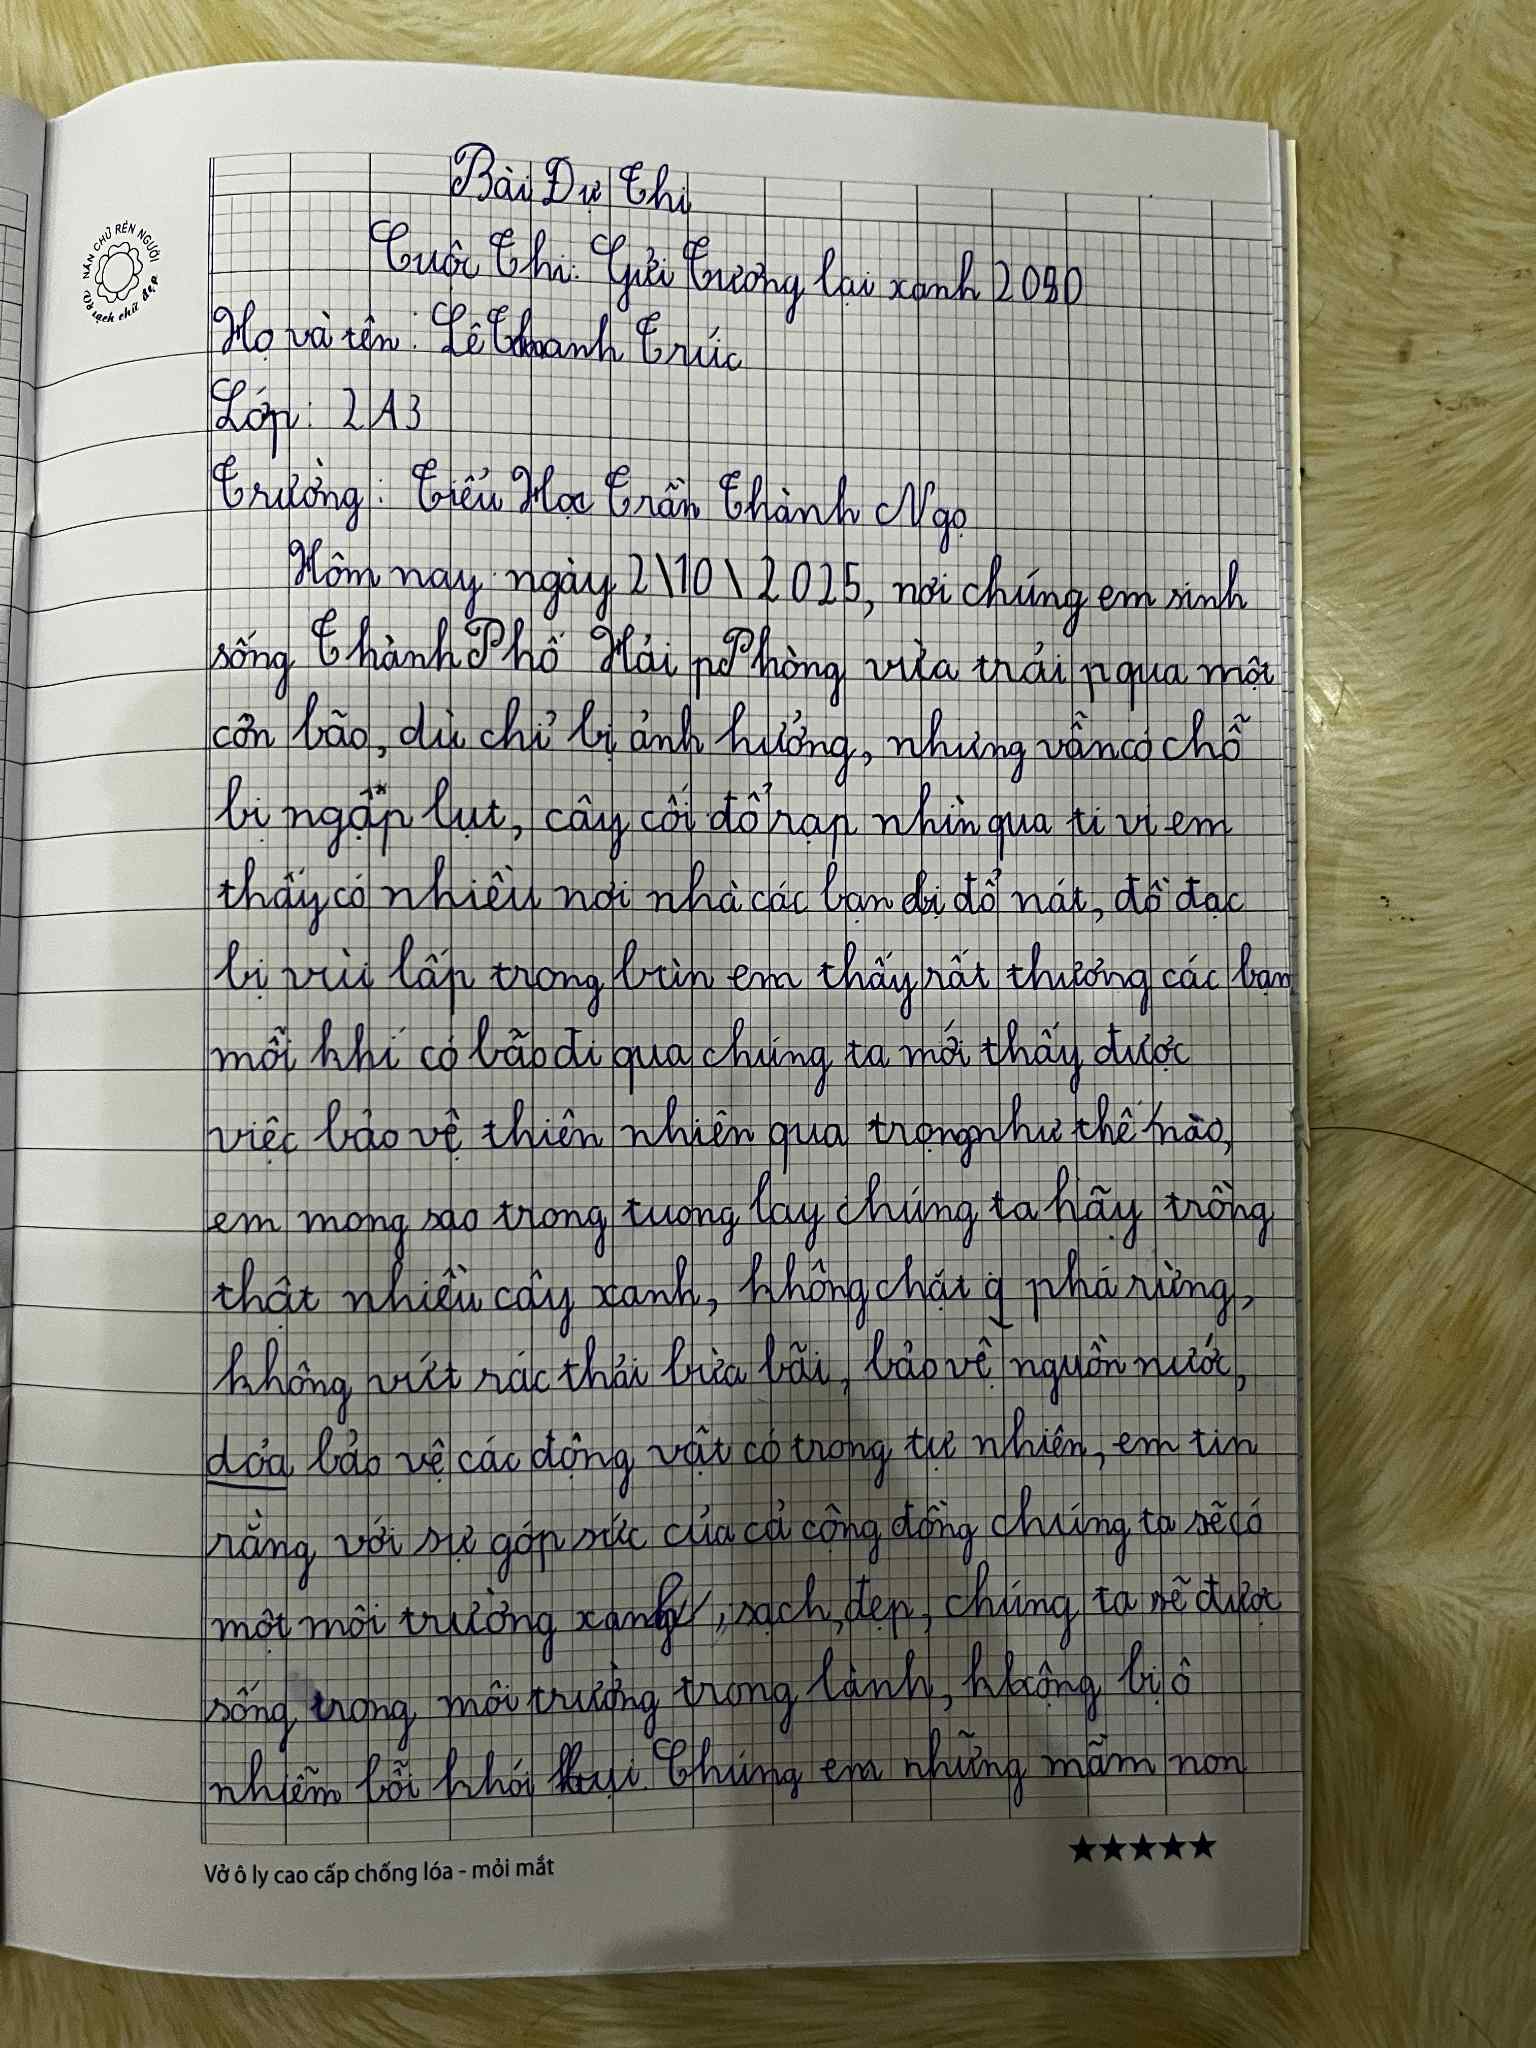 Bài Dự Thi
Cuộc Thi: Gửi Tương lại xanh 2050
Họ và tên: Lê Thanh Trúc
Lớp: 2A3
Trường: Tiểu Học Trần Thành Ngọ
Hôm nay ngày 2\10\2025, nơi chúng em sinh
sống Thành Phố Hải Phòng vừa trải qua một
cơn bão, dù chỉ bị ảnh hưởng, nhưng vẫn có chỗ
bị ngập lụt, cây cối đổ rạp nhìn qua ti vi em
thấy có nhiều nơi nhà các bạn bị đổ nát, đồ đạc
bị vùi lấp trong bùn em thấy rất thương các bạn
mỗi khi có bão đi qua chúng ta mới thấy được
việc bảo vệ thiên nhiên qua trọng như thế nào,
em mong sao trong tuong lay chúng ta hãy trồng
thật nhiều cây xanh, không chặt phá rừng,
không vứt rác thải bừa bãi, bảo vệ nguồn nước,
dỏa bảo vệ các động vật có trong tự nhiên, em tin
rằng với sự góp sức của cả cộng đồng chúng ta sẽ có
một môi trường xanh, sạch, đẹp, chúng ta sẽ được
sống trong môi trường trong lành, không bị ô
nhiễm bởi khói bụi. Chúng em những mầm non
NÉT CHỮ RÈN NGƯỜI
Vở sạch chữ đẹp
Vở ô ly cao cấp chống lóa - mỏi mắt